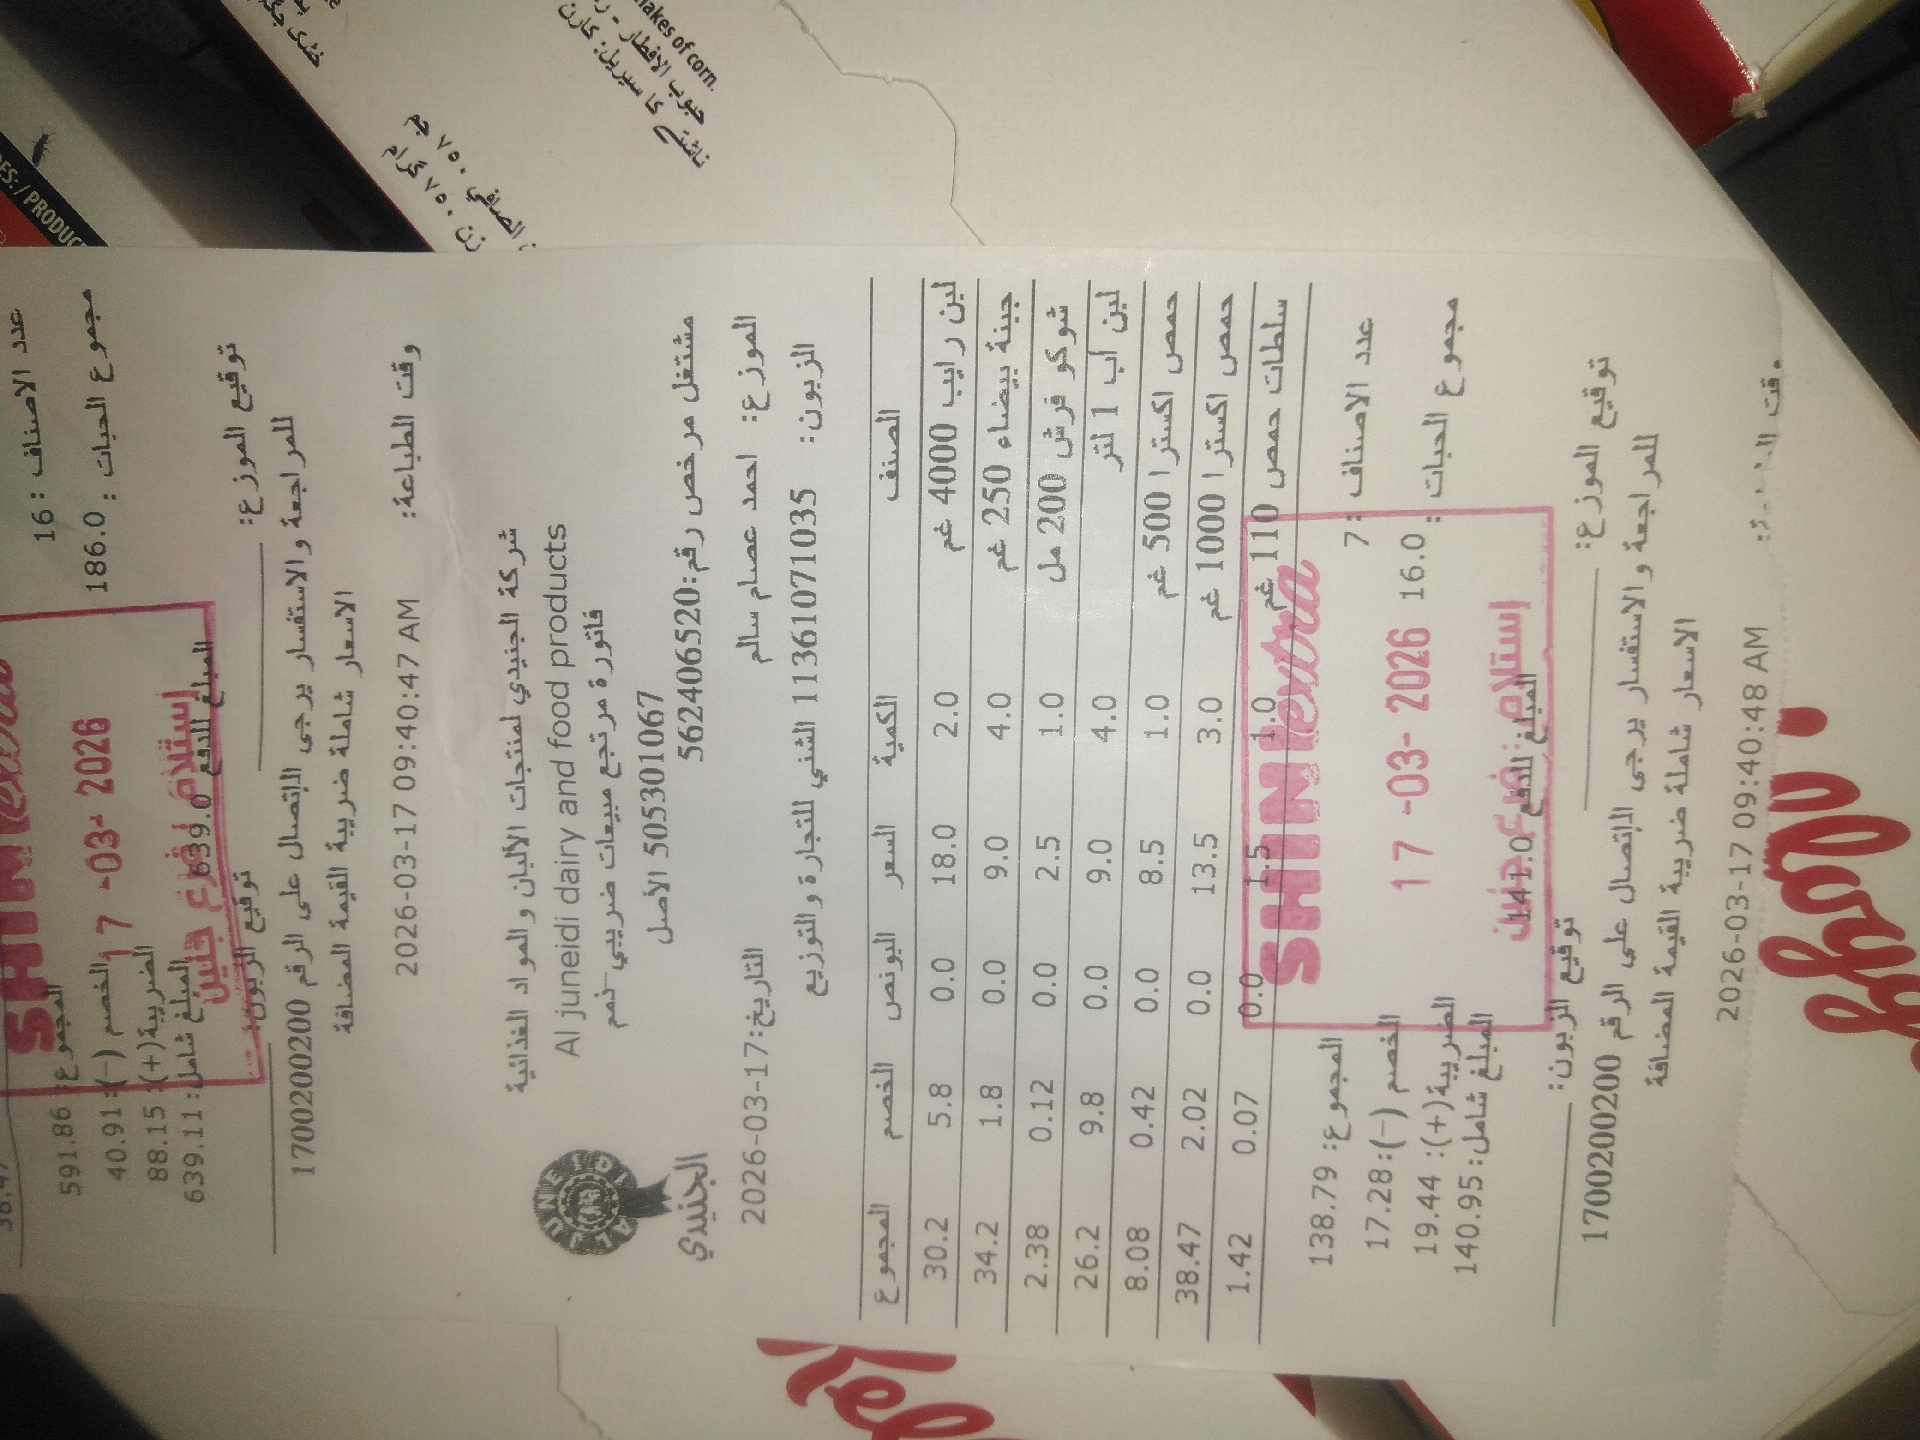 makes of corn.
حبوب الافطار
ناشتے کا سیریل: کارن
الصافي ٧٥٠ جم
٧٥٠ گرام
PRODUC
عدد الاصناف : 16
مجموع الحبات : 186.0
17 -03- 2026
المجموع: 591.86
الخصم (-): 40.91
الضريبة(+): 88.15
المبلغ شامل: 639.11
المبلغ للدفع 639.0
إستلام فرع جنين
توقيع الموزع:
توقيع الزبون:
للمراجعة والاستفسار يرجى الإتصال على الرقم 1700200200
الاسعار شاملة ضريبة القيمة المضافة
وقت الطباعة: 2026-03-17 09:40:47 AM
شركة الجنيدي لمنتجات الألبان والمواد الغذائية
Al juneidi dairy and food products
فاتورة مرتجع مبيعات ضريبي-ذمم
505301067 الأصل
مشتغل مرخص رقم:562406520
AL JUNEIDI
الجنيدي
الموزع: احمد عصام سالم
التاريخ:2026-03-17
الزبون: 1136107​1035 الشني للتجارة والتوزيع
الصنف الكمية السعر البونص الخصم المجموع
لبن رايب 4000 غم 2.0 18.0 0.0 5.8 30.2
جبنة بيضاء 250 غم 4.0 9.0 0.0 1.8 34.2
شوكو فرش 200 مل 1.0 2.5 0.0 0.12 2.38
لبن أب 1 لتر 4.0 9.0 0.0 9.8 26.2
حمص اكسترا 500 غم 1.0 8.5 0.0 0.42 8.08
حمص اكسترا 1000 غم 3.0 13.5 0.0 2.02 38.47
سلطات حمص 110 غم 1.0 1.5 0.0 0.07 1.42
SHINI extra
عدد الاصناف : 7
مجموع الحبات : 16.0
17 -03- 2026
المجموع: 138.79
الخصم (-): 17.28
الضريبة(+): 19.44
المبلغ شامل: 140.95
إستلام: فرع جنين
المبلغ للدفع 141.0
توقيع الموزع:
توقيع الزبون:
للمراجعة والاستفسار يرجى الإتصال على الرقم 1700200200
الاسعار شاملة ضريبة القيمة المضافة
2026-03-17 09:40:48 AM